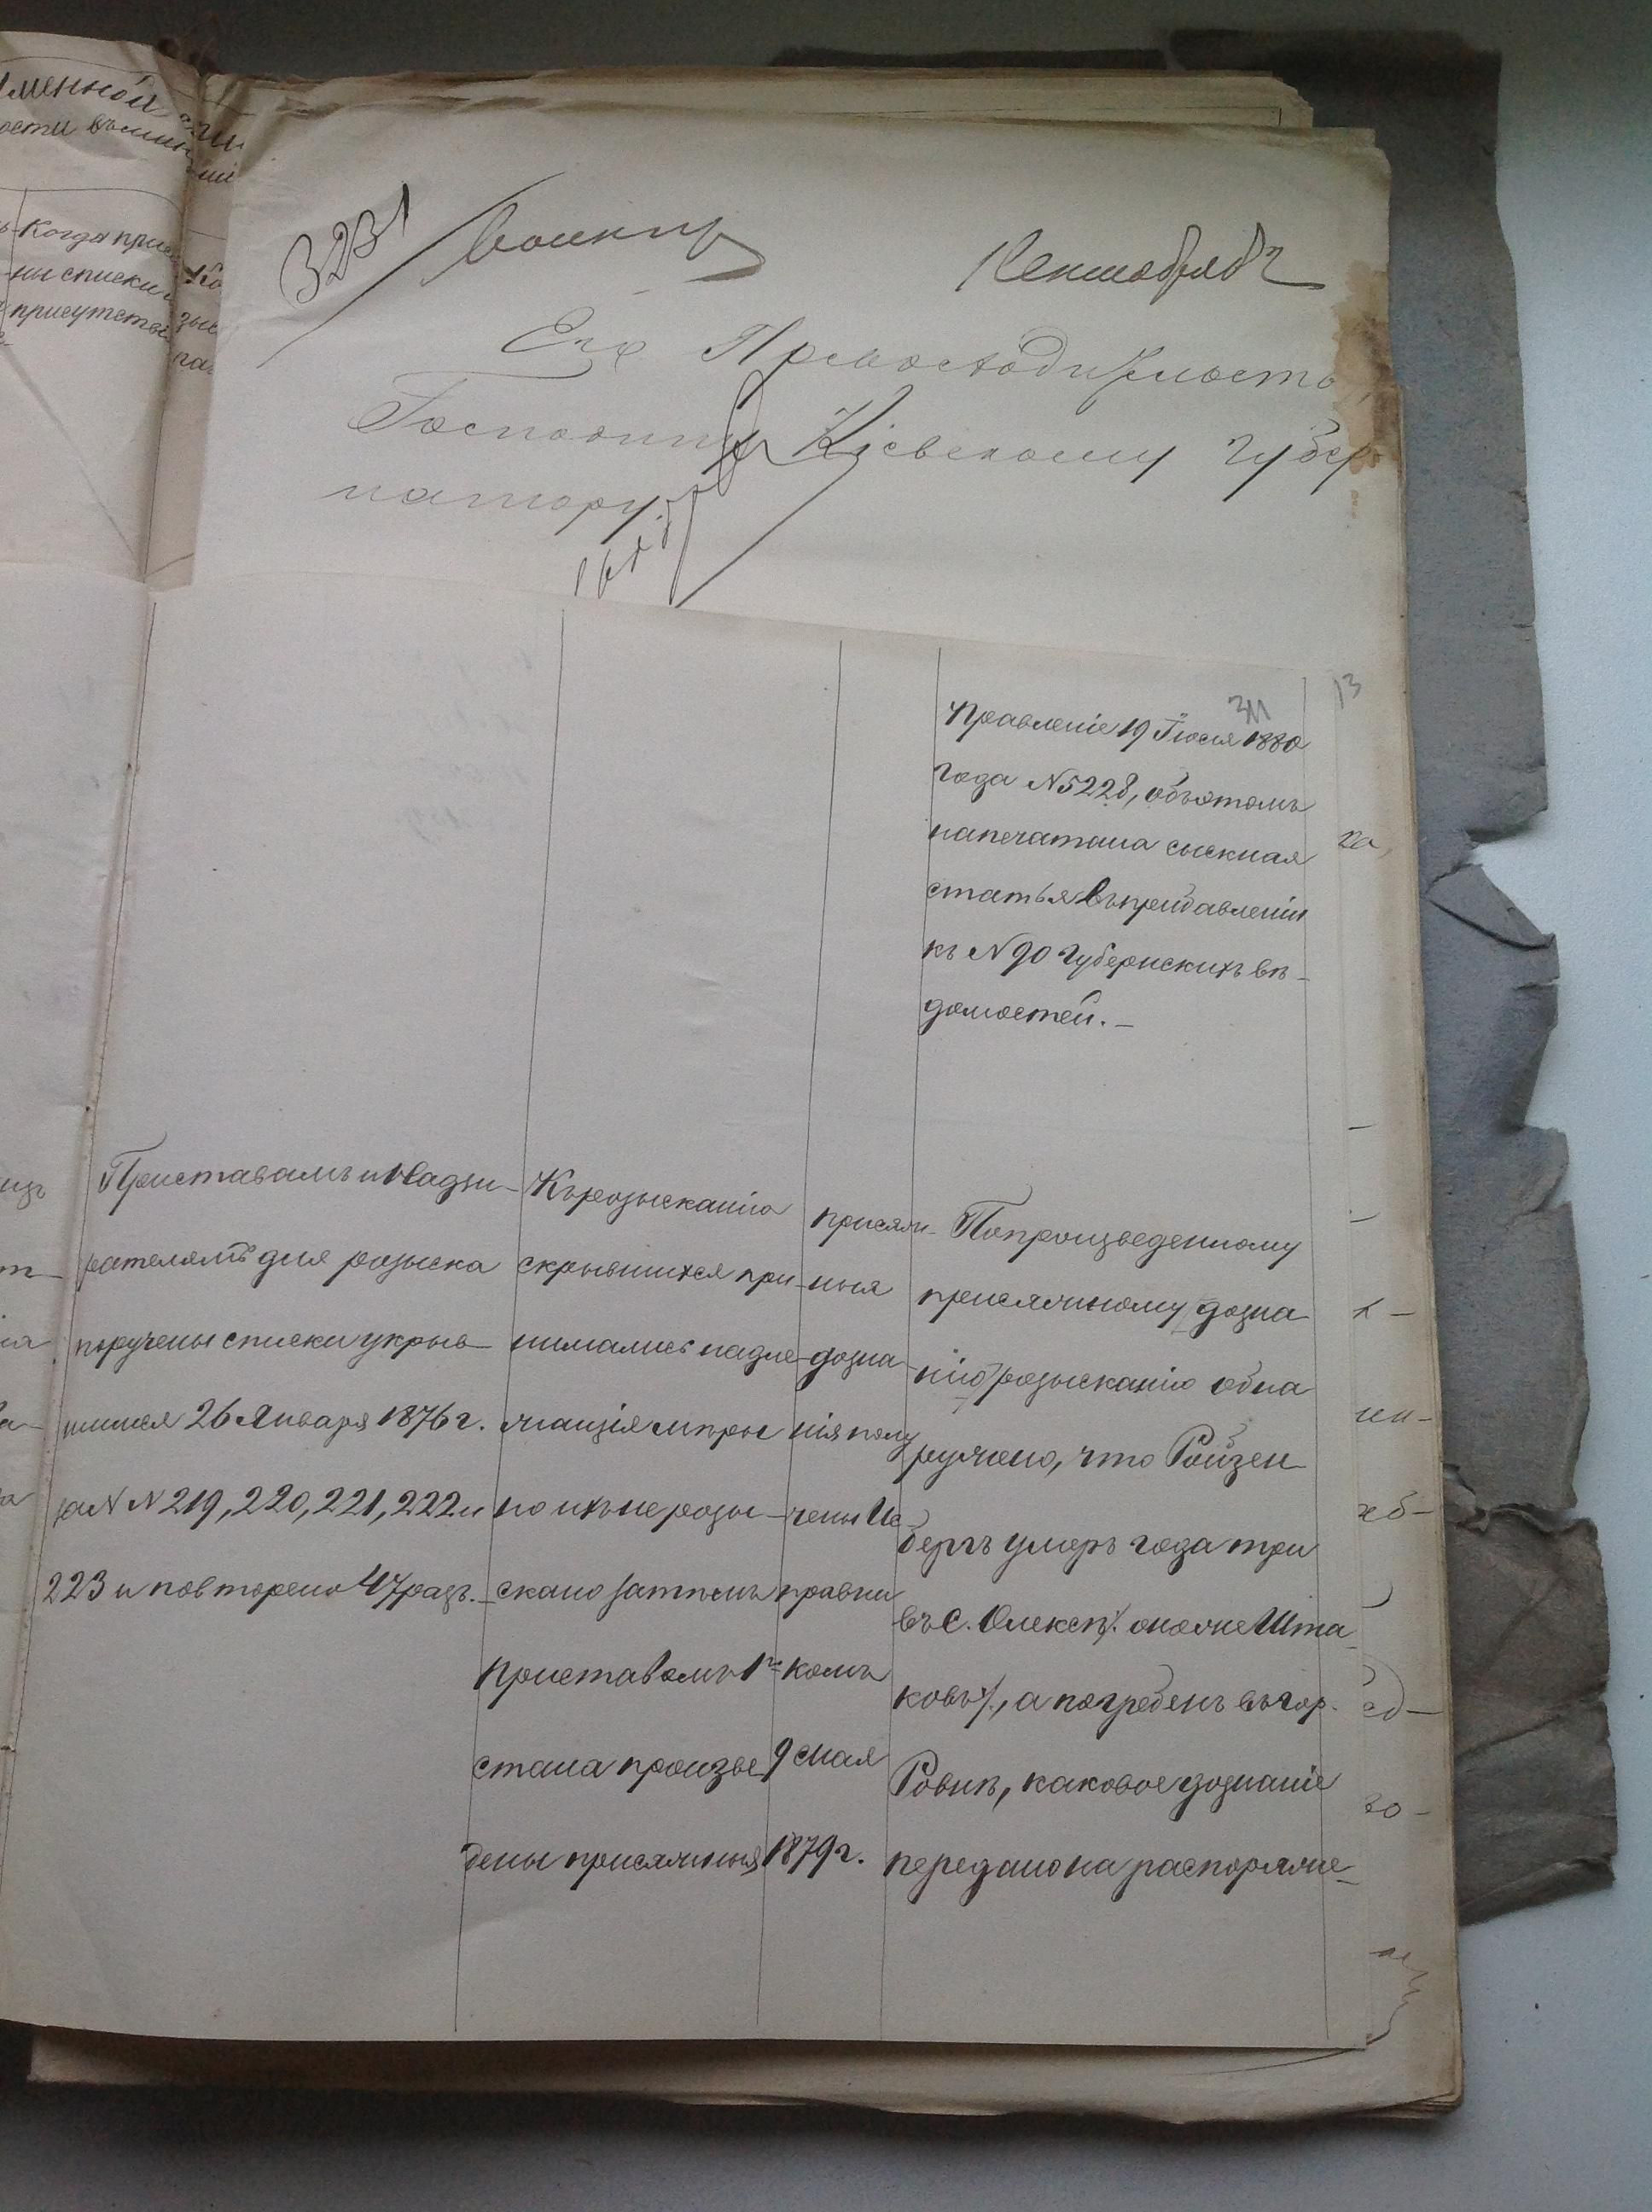 менной
ости
Когда при
ны списки
присутстві
3231
Сентября 2
Его Превосходительство
Господину Кіевскому губер
натору.
311
13
Правленіе 19 Іюля 1880
года N 5228, объ этомъ
напечатана сыскная
статья въ прибавленіи
къ N 90 Губернскихъ вѣ-
домостей. —
Приставамъ и Надзи-
рателямъ для розыска
поручены списки укрыв-
шимся 26 Января 1876 г.
за N N 219, 220, 221, 222 и
223 и повторено 47 разъ. —
Къ розысканію
скрывшихся при-
нимались надле-
жащія мѣры
но ихъ не розы-
скано затѣмъ
Приставомъ 1го
стана произве
дены присяжныя
присяж-
ныя
дозна-
нія полу
чены Ис-
правни
комъ
9 мая
1879 г.
По произведенному
присяжному дозна
нію розысканію обна
ружено, что Ройзен
бергъ умеръ года три
въ с. Олексѣ. около
ковъ, а погребенъ въ гор.
Ровнѣ, каковое дознаніе
передано на распоряже-